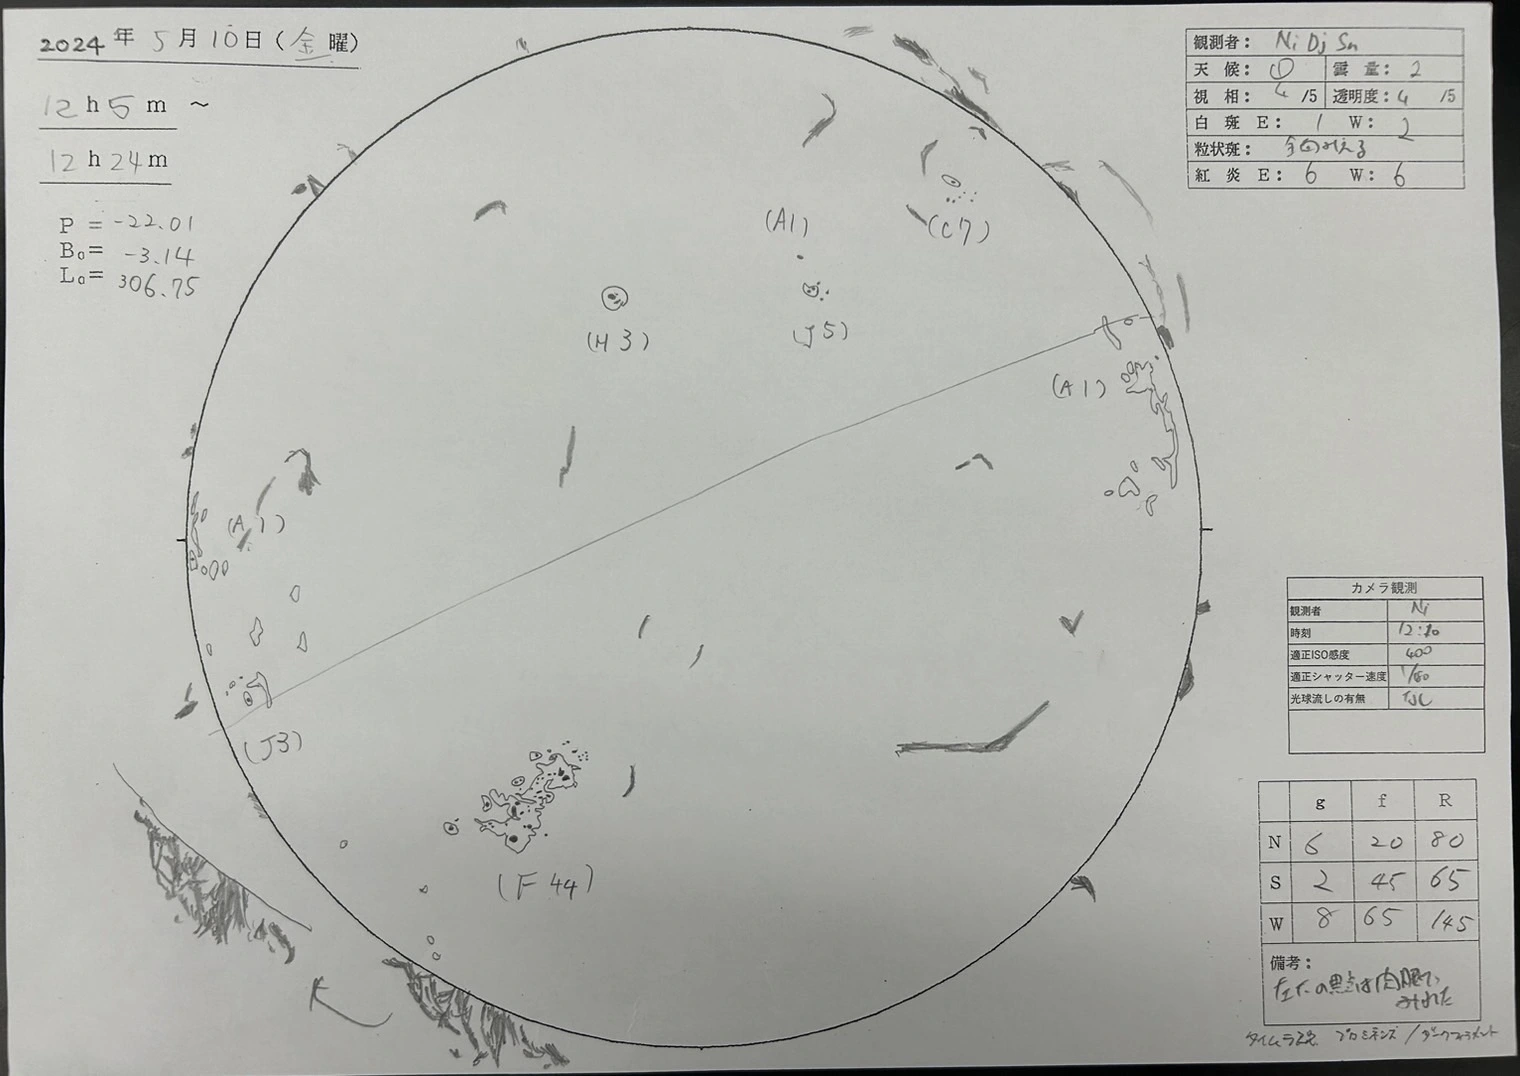 2024年 5月10日(金曜)
12h5m ~
12h24m
P = -22.01
B₀= -3.14
L₀= 306.75
観測者: Ni Dj Sn
天候: ① 雲量: 2
視相: 4/5 透明度: 4/5
白斑 E: 1 W: 2
粒状斑: 全面みえる
紅炎 E: 6 W: 6
(A1)
(C7)
(H3)
(J5)
(A1)
(A1)
(J3)
(F44)
カメラ観測
観測者 Ni
時刻
適正ISO感度 400
適正シャッター速度 1/80
光球流しの有無 なし
g f R
N 6 20 80
S 2 45 65
W 8 65 145
備考:
左下の黒点は肉眼で
みれた
プロミネンス/ダークフィラメント